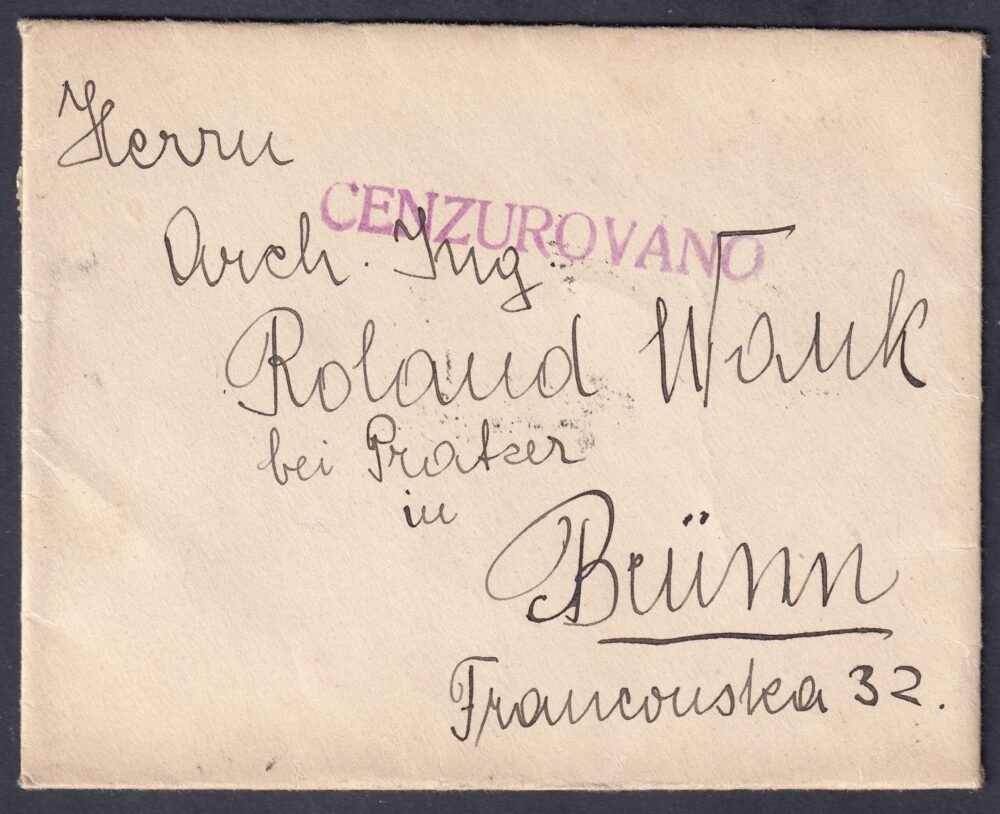 Herrn
CENZUROVANO
Arch. Ing
Roland Wank
bei Pratzer
in
Brünn
Francouska 32.